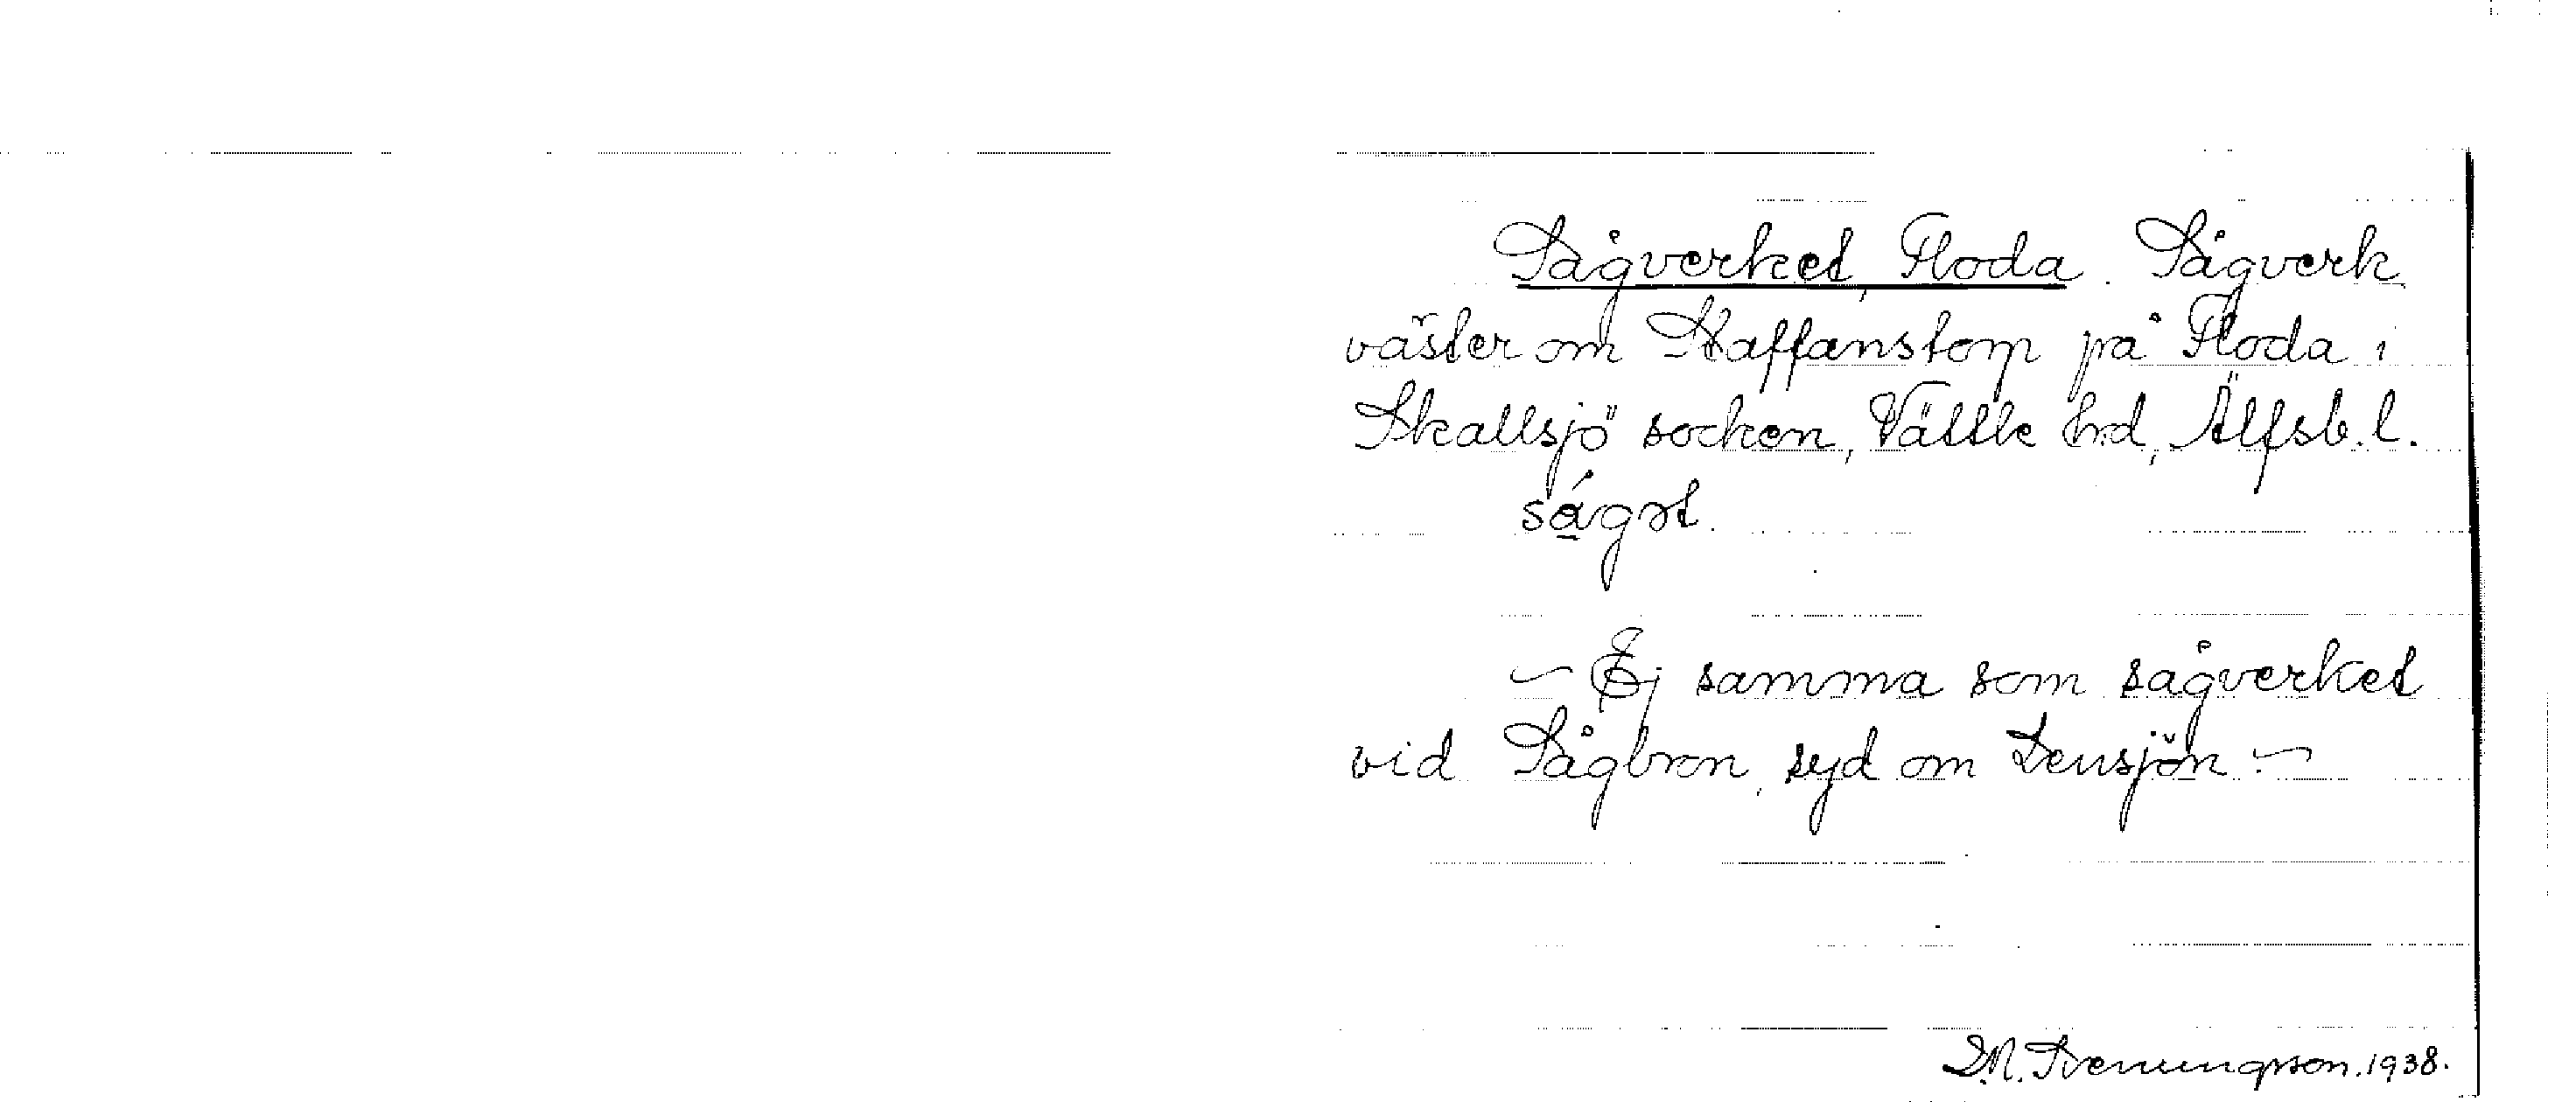 Sågverket, Floda. Sågverk
väster om Staffanstorp på Floda i
Skallsjö socken, Vättle hrd, Älfsb. l.
ságət.
– Ej samma som sågverket
vid Sågbron, syd om Sensjön –
1938.